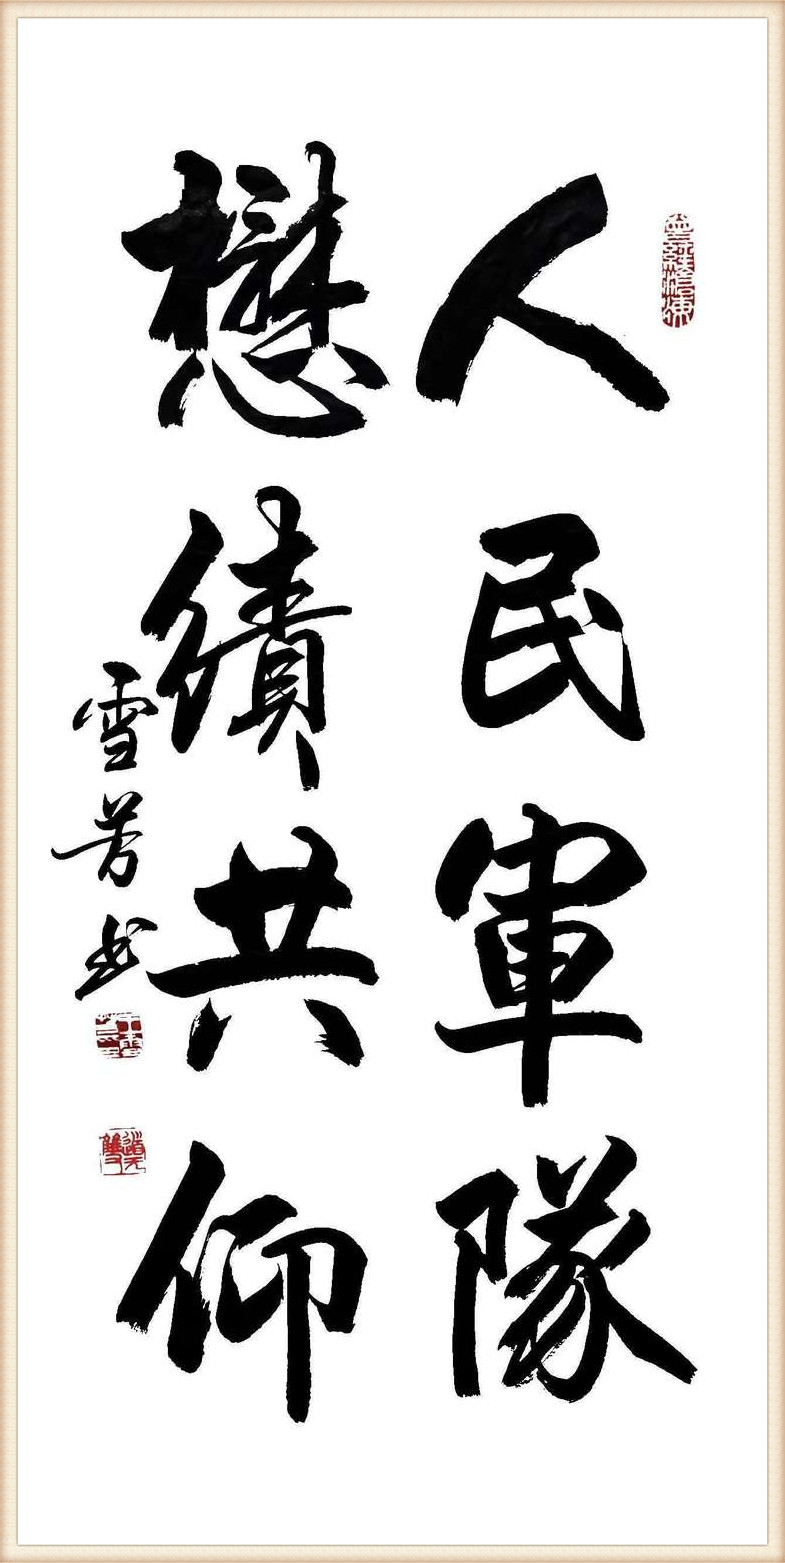 人民軍隊
懋績共仰
雪芳书